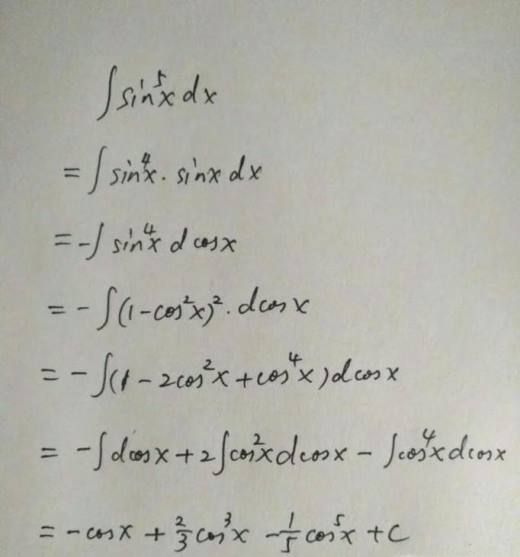 ∫sin⁵x dx
= ∫sin⁴x · sinx dx
= -∫ sin⁴x d cosx
= - ∫(1-cos²x)² · dcosx
= - ∫(1 - 2cos²x + cos⁴x) dcosx
= -∫dcosx + 2∫cos²x dcosx - ∫cos⁴x dcosx
= -cosx + 2/3 cos³x - 1/5 cos⁵x + C